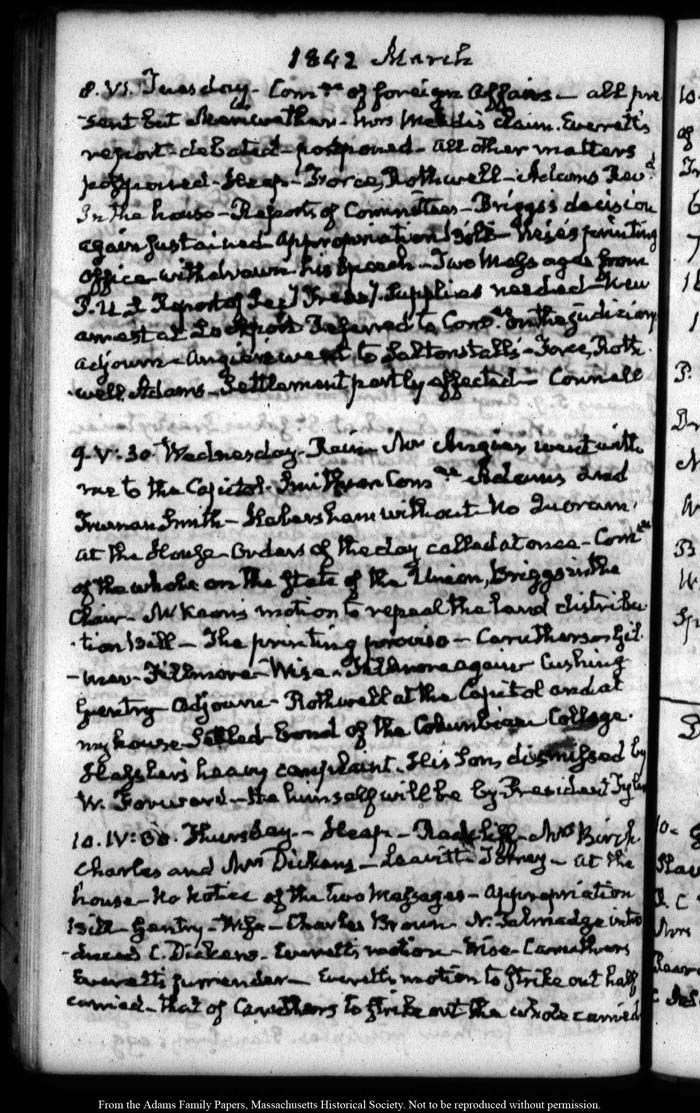 1842 March
8. VI. Tuesday. Comee of foreign Affairs — all pre
-sent but Meriwether. Mrs claim. Everett's
report debated postponed — all other matters
postponed — Heap — Force, Rothwell — Adams Revd
In the house — Reports of Committees — Briggs's decision
again sustained — Appropriation bill — Wise's printing
office withdrawn his speech — Two Messages from
P. U.S. Report of Secy Treasy. Supplies needed — New
arrest at Lockport Referred to Comee on the judiciary
adjourn — Angier went to Saltonstall's — Force, Roth
-well Adams — Settlement partly effected — Connell
9. V: 30. Wednesday. Rain — Mr Angier went with
me to the Capitol. Smithson Comee Adams and
Truman Smith — Habersham without No Quorum.
At the House — Orders of the day called at once — Comee
of the whole on the State of the Union, Briggs in the
Chair — McKeon's motion to repeal the land distribu
-tion bill — The printing proviso — Caruthers — Gil
-mer — Fillmore — Wise — Fillmore again Cushing
Gentry adjourn — Rothwell at the Capitol and at
my house — Settled bond of the Columbian College.
heavy complaint. His Son dismissed by
W. Forward — He himself will be by President Tyler
10. IV: 30. Thursday — Heap — Radcliff — Mrs Birch
Charles and Mrs Dickens — Leavitt — At the
house — No notice of the two Messages — Appropriation
Bill — Gentry — Wise — Charles Brown N. Talmadge intro
-duced C. Dickens. Everett's motion — Wise — Caruthers
Everett's surrender — Everett's motion to strike out half
carried — that of Caruthers to strike out the whole carried
From the Adams Family Papers, Massachusetts Historical Society. Not to be reproduced without permission.